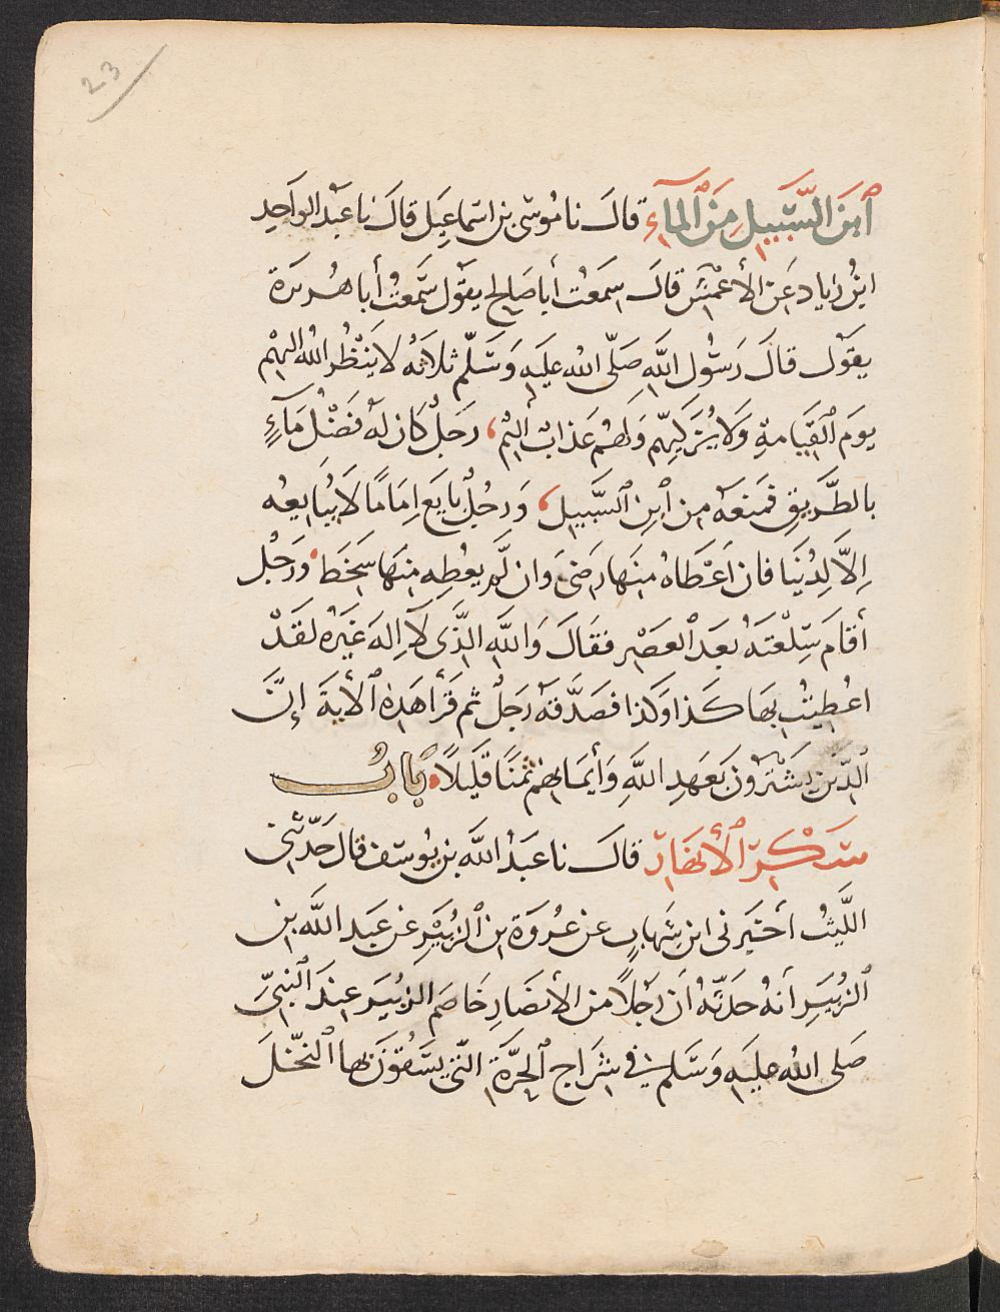 23
ابْنَ السَّبِيلِ مِنَ الْمَآءِ قالَ نا مُوسَى بن اسماعِيل قالَ نا عبْد الواحِدِ
ابنُ زياد عَنِ الأعْمَشِ قالَ سمَعْتُ أبا صَالحٍ يقوْل سَمَعْتُ أبا هُريرَة
يقوْل قالَ رَسُول اللَّهِ صَلّى اللهُ عليَهِ وَسَلّم ثلاثَةُ لا يَنْظُر اللهُ اليْهِم
يوَم الْقِيَامةِ وَلا يُزَكيِّهم وَلهُم عَذابٌ اليْم، رجَلْ كان لهُ فضْلُ مَآءٍ
بالطَّريقِ فمَنعَهُ من ابْنِ السَّبيل، وَرجُلْ بايَعَ امَامًا لا يُبَايعُه
إلاَّ لِدُنْيَا فان اعْطَاهُ منهَا رضَى وَان لَّم يعُطِهِ منهَا سَخَط ورَجُل
أقامَ سِلْعْتَهُ بعَد الْعصْرِ فقَالَ وَاللَّهِ الذَّى لا إلهَ غيَرُهُ لقدْ
اعُطِيتُ بهَا كذا وَكذا فصَدَّقهُ رَجَلْ ثم قَرأ هَذِهِ الْأيةَ إنَّ
الذِّينَ يشْترُونَ بعَهدِ اللَّهِ وَأيمَانِهم ثمنًا قَليلاً. بَابُ
سَكْرِ الْأنهَارِ قالَ نا عبَدُ اللَّه بن يُوسَف قال حَدّثنى
اللَّيثُ اخبَرنى ابن شِهابٍ عن عُروَة بن الزُّبيَرِ عن عبَد اللَّه بن
الزُّبيَرِ أنهُ حدَثّهُ ان رَجُلاً من الأنصَارِ خَاصَم الزبُيَر عِندَ النْبِيِّ
صَلى اللهُ عليَهِ وَسَلم في شِرَاج الْحَرَّةِ التّي يسَقوُنَ بها النخّلَ